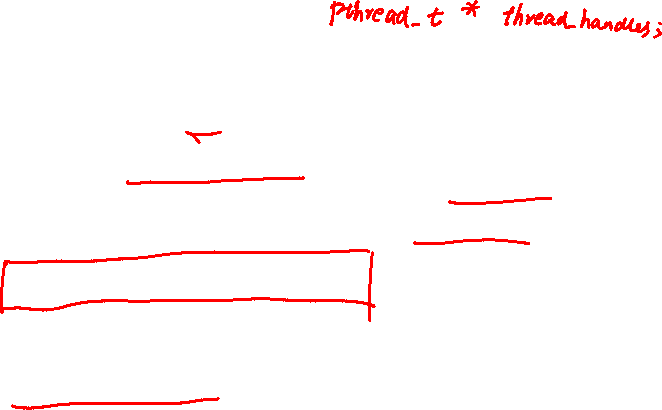 pthread_t * thread_handles;